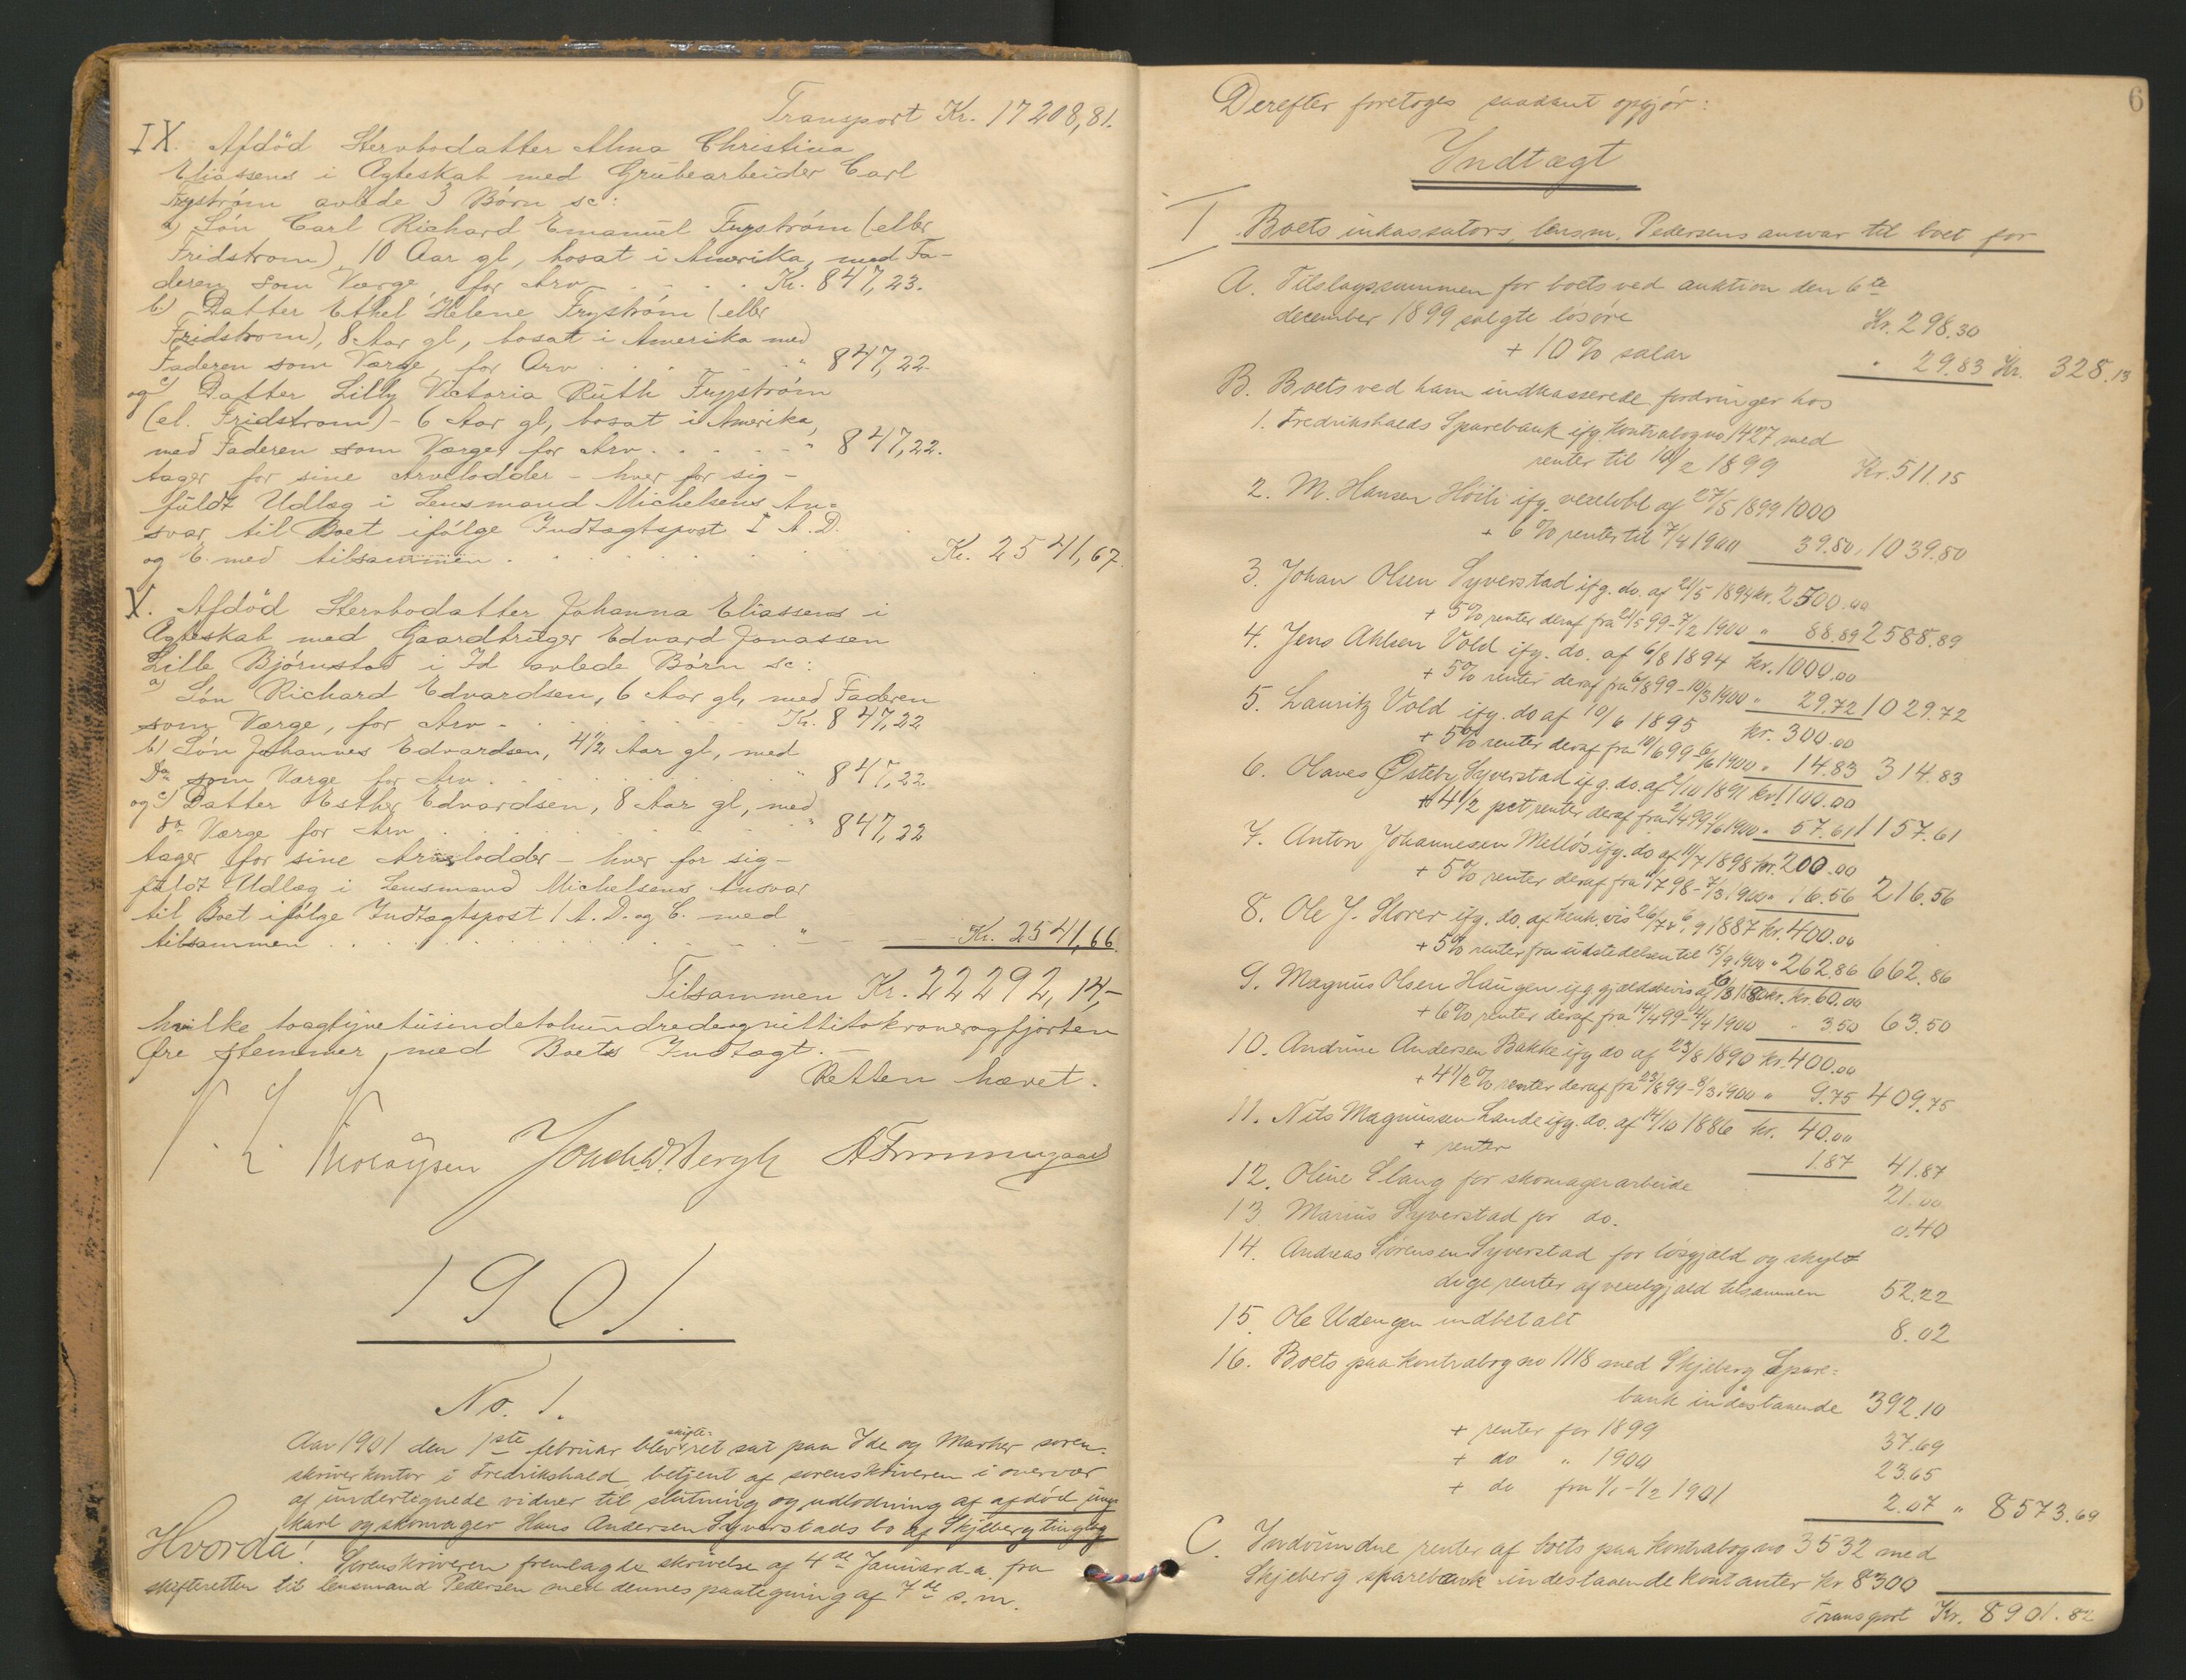 Transport Kr. 17208,81.
IX. Afdöd Stervbodatter Alma Christina
Eliassens i Ægteskab med Grubearbeider Carl
Frystrøm avlede 3 Børn sc:
a) Søn Carl Richard Emanuel Frystrøm (eller
Fridstrom) 10 Aar gl, bosat i Amerika, med Fa-
deren som Værge, for Arv . . . . Kr. 847,23.
b) Datter Ethel Helene Frystrøm (eller
Fridstrom), 8 Aar gl, bosat i Amerika med
Faderen som Værge, for Arv . . . . . " 847,22.
og c) Datter Lilly Victoria Ruth Frystrøm
(el. Fridstrom) - 6 Aar gl, bosat i Amerika,
med Faderen som Værge, for Arv . . . . . " 847,22.
tager for sine Arvelodder - hver for sig -
fuldt Udlæg i Lensmand Michelsens An-
svar til Boet ifølge Indtægtspost I A. D.
og E. med tilsammen . . . . . . . Kr. 2541,67.
X. Afdöd Stervbodatter Johanna Eliassens i
Ægteskab med Gaardbruger Edvard Jonassen
Lille Bjørnstad i Id avlede Børn sc:
a) Søn Richard Edvardsen, 6 Aar gl, med Faderen
som Værge, for Arv . . . . . . . Kr. 847,22
b) Søn Johannes Edvardsen, 4 1/2 Aar gl, med
Do som Værge for Arv . . . . . . . " 847,22.
og c) Datter Esther Edvardsen, 8 Aar gl, med
do Værge for Arv . . . . . . . . " 847,22
tager for sine Arvelodder - hver for sig -
fuldt Udlæg i Lensmand Michelsens Ansvar
til Boet ifølge Indtægtspost I A. D. og C. med
tilsammen . . . . . . . . " Kr. 2541,66.
Tilsammen Kr. 22292,14,-
hvilke toogtyvetusindetohundredeognittitokronerogfjorten
Øre stemmer med Boets Indtægt. -
Retten hævet.
1901.
No. 1.
Aar 1901 den 1ste februar blev skifte-ret sat paa Ide og Marker soren-
skriverkontor i Fredrikshald, betjent af sorenskriveren i overvær
af undertegnede vidner til slutning og udlodning af afdød ung-
karl og skomager Hans Andersen Syverstads bo af Skjeberg tinglag
Hvorda!
Sorenskriveren fremlagde skrivelse af 4de Januar d.a. fra
skifteretten til lensmand Pedersen med dennes paategning af 7de s.m.
6
Derefter foretoges saadant opgjør:
Indtægt
I Boets inkassators, lensm. Pedersens ansvar til boet for
A. Tilslagssummen for boets ved auktion den 6te
december 1899 solgte løsøre Kr. 298.30
+ 10% salær " 29.83 Kr. 328.13
B. Boets ved ham indkasserede fordringer hos
1. Fredrikshalds Sparebank ifg. kontrabog no 1427 med
renter til 10/2 1899 Kr. 511.15
2. M. Hansen Høili ifg. vexelobl af 27/5 1899 1000
+ 6% renter til 7/4 1900 39.80, 1039.80
3. Johan Olsen Syverstad ifg. do. af 21/5 1894 kr. 2500.00
+ 5% renter deraf fra 21/5 99 - 7/2 1900 " 88.89 2588.89
4. Jens Ahlsen Vold ifg. do. af 6/8 1894 kr. 1000.00
+ 5% renter deraf fra 6/8 99 - 10/3 1900 " 29.72 1029.72
5. Lauritz Vold ifg. do af 10/6 1895 kr. 300.00
+ 5% renter deraf fra 10/6 99 - 6/6 1900 " 14.83 314.83
6. Olaves Østeby Syverstad ifg. do. af 2/10 1891 kr. 1100.00
+ 4 1/2 pct renter deraf fra 2/4 99 1/6 1900 " 57.61 1157.61
7. Anton Johannesen Melløs ifg. do af 11/7 1898 kr. 200.00
+ 5% renter deraf fra 11/7 98 - 7/3 1900 " 16.56 216.56
8. Ole J. Storer ifg. do. af henh. vis 26/7 & 6/9 1887 kr. 400.00
+ 5% renter fra udstedelsen til 15/9 1900 " 262.86 662.86
9. Magnus Olsen Haugen ifg. gjældsbevis af 6/3 1880 kr. kr. 60.00
+ 6% renter deraf fra 14/4 99 - 4/4 1900 " 3.50 63.50
10. Andrine Andersen Bakke ifg do af 23/8 1890 kr. 400.00
+ 4 1/2 % renter deraf fra 23/8 99 - 8/3 1900 " 9.75 409.75
11. Nils Magnussen Lande ifg. do. af 14/10 1886 kr. 40.00
+ renter 1.87 41.87
12. Oline Slang for skomagerarbeide 21.00
13 Marius Syverstad for do. 0.40
14. Andreas Sørensen Syverstad for løsgjæld og skyl-
dige renter af vexelgjæld tilsammen 52.22
15. Ole Udengen indbetalt 8.02
16. Boets paa kontrabog no 1118 med Skjeberg Spare-
bank indestaaende 392.10
+ renter for 1899 37.69
+ do " 1900 23.65
+ do fra 1/1 - 1/2 1901 2.07 " 8573.69
C. Indvundne renter af boets paa kontrabog no 3532 med
Skjeberg sparebank indestaaende kontanter kr 8300
Transport Kr. 8901.82